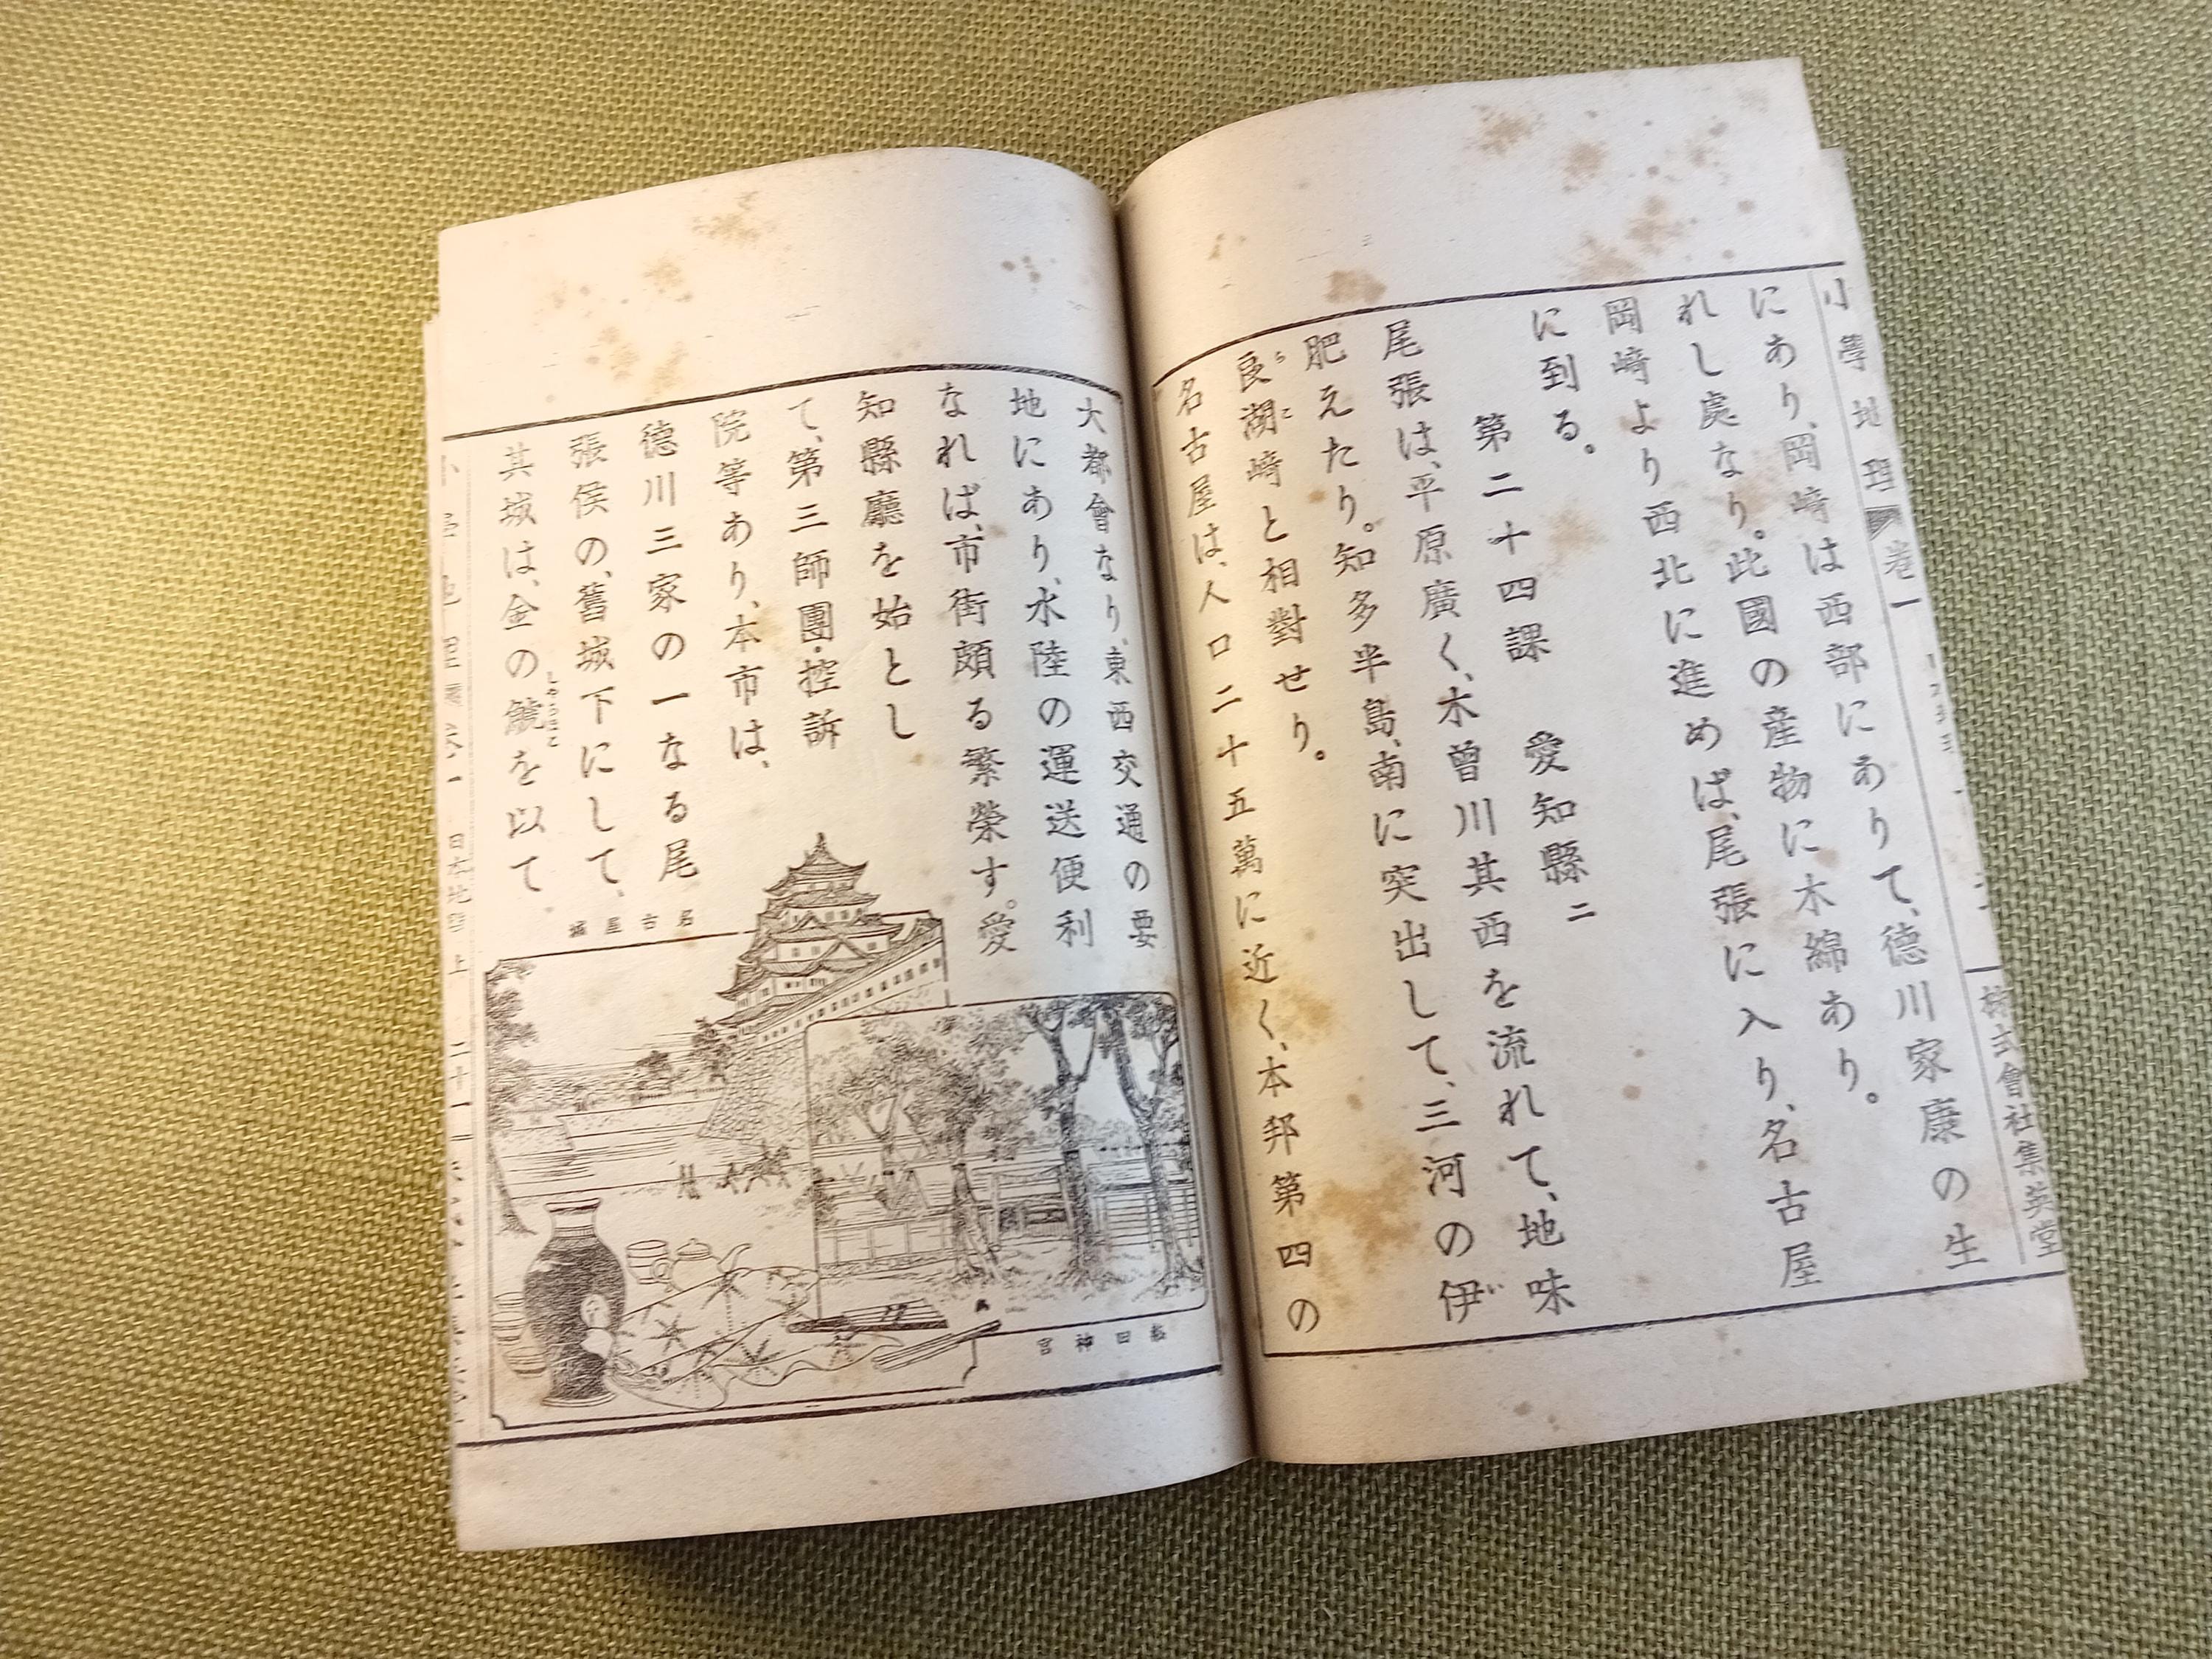 小學地理 卷一
株式會社集英堂
にあり、岡﨑は西部にありて、德川家康の生
れし處なり。此國の產物に木綿あり。
岡﨑より西北に進めば、尾張に入り、名古屋
に到る。
第二十四課 愛知縣 二
尾張は、平原廣く、木曾川其西を流れて、地味
肥えたり。知多半島、南に突出して、三河の伊
良湖﨑と相對せり。
名古屋は、人口二十五萬に近く、本邦第四の
大都會なり、東西交通の要
地にあり、水陸の運送便利
なれば、市街頗る繁榮す。愛
知縣廳を始とし
て、第三師團・控訴
院等あり、本市は、
德川三家の一なる尾
張侯の、舊城下にして、
其城は、金の鯱を以て
名古屋城
熱田神宮
日本地理 上 二十一